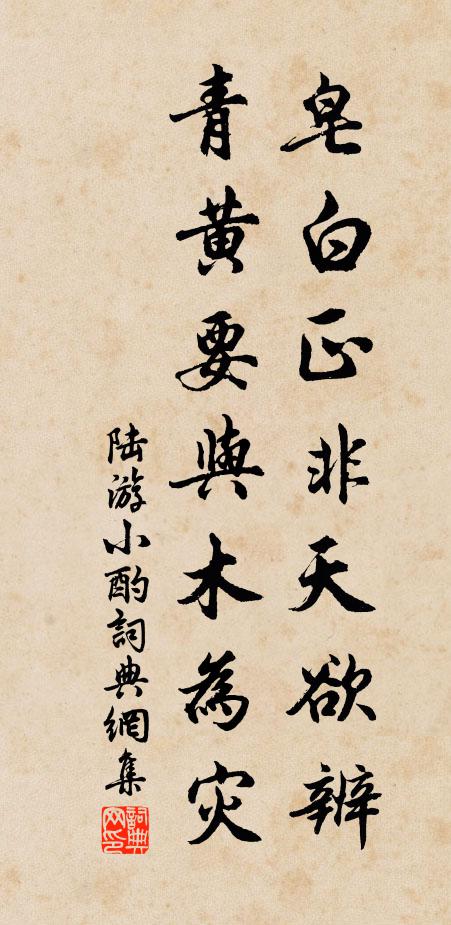 皂白正非天欲辨
青黃要與木為灾
陆游小酌詞典網集
詞典网印